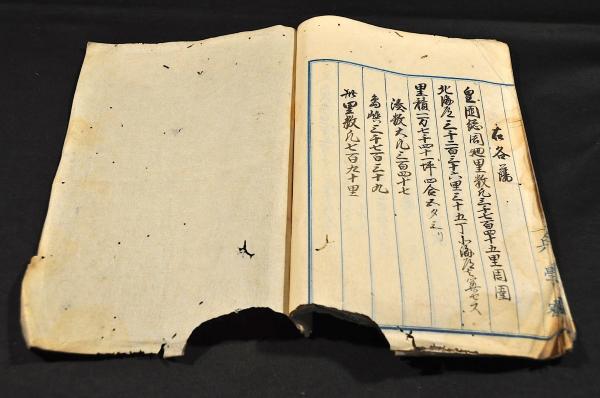 在各藩
皇国総周廻里数凡三千七百四十五里周囲
北海道三千二百三十六里三十五丁小海道ハ算セス
里積一万七千四十一坪四合五夕
湊数大凡三百四十七
島嶼三千七百三十九
此里数凡七百九十里
兵学